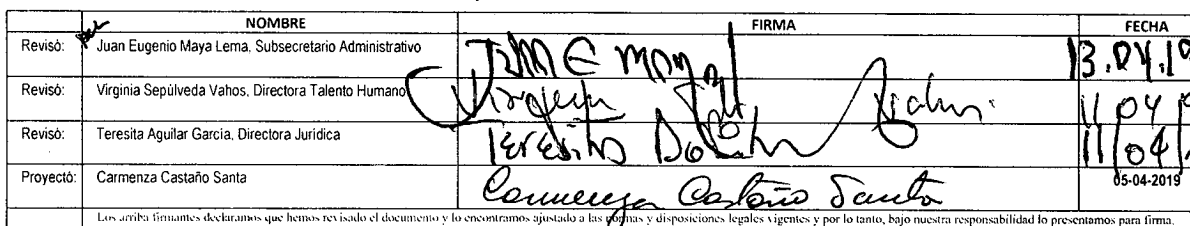 NOMBRE FIRMA FECHA
Revisó: Juan Eugenio Maya Lema, Subsecretario Administrativo 13.04.19
Revisó: Virginia Sepúlveda Vahos, Directora Talento Humano Virginia 11 04
Revisó: Teresita Aguilar García, Directora Jurídica Teresita 11/04/
Proyectó: Carmenza Castaño Santa Carmenza Castaño Santa 05-04-2019
Los arriba firmantes declaramos que hemos revisado el documento y lo encontramos ajustado a las normas y disposiciones legales vigentes y por lo tanto, bajo nuestra responsabilidad lo presentamos para firma.